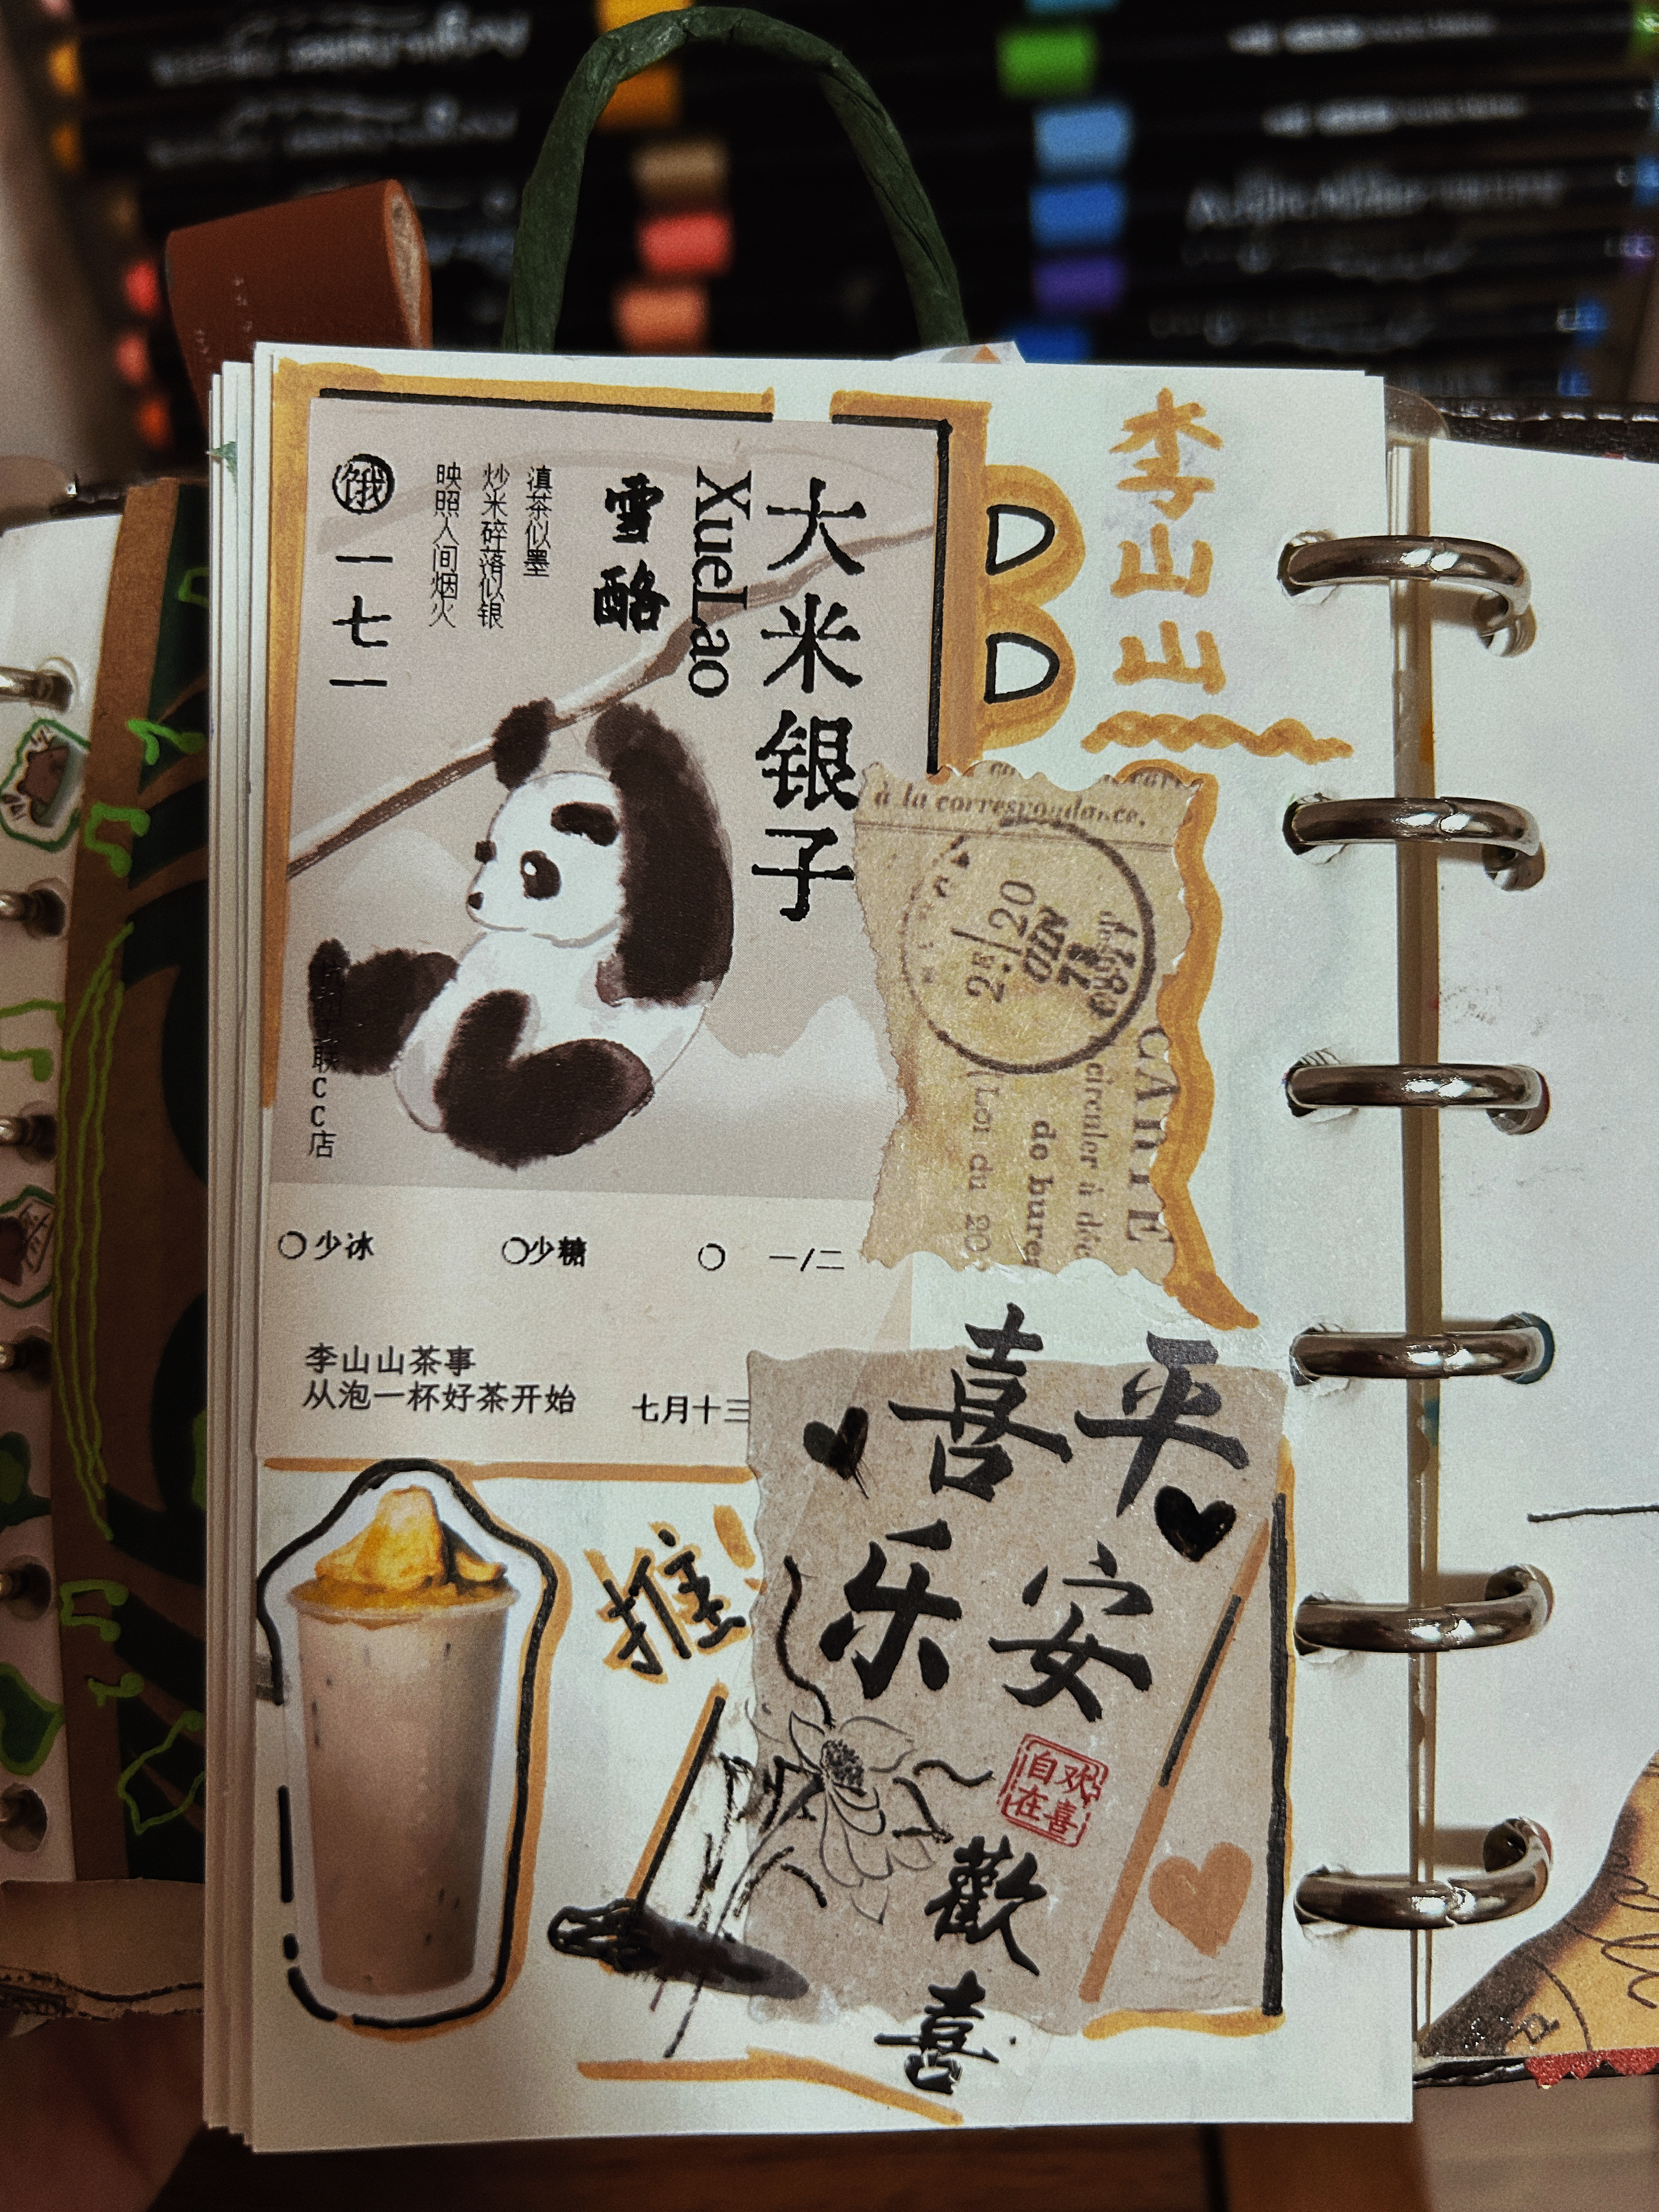 李山山
大米银子
XueLao
雪酪
滇茶似墨
炒米碎落似银
映照人间烟火
饿
一七一
联CC店
少冰
少糖
一/二
李山山茶事
从泡一杯好茶开始
七月十三
à la correspondance.
2E/20
JUIN
78
CARTE
circuler à déc
de bure
Loi du 20
平安
喜乐
推!
欢喜
自在
歡喜